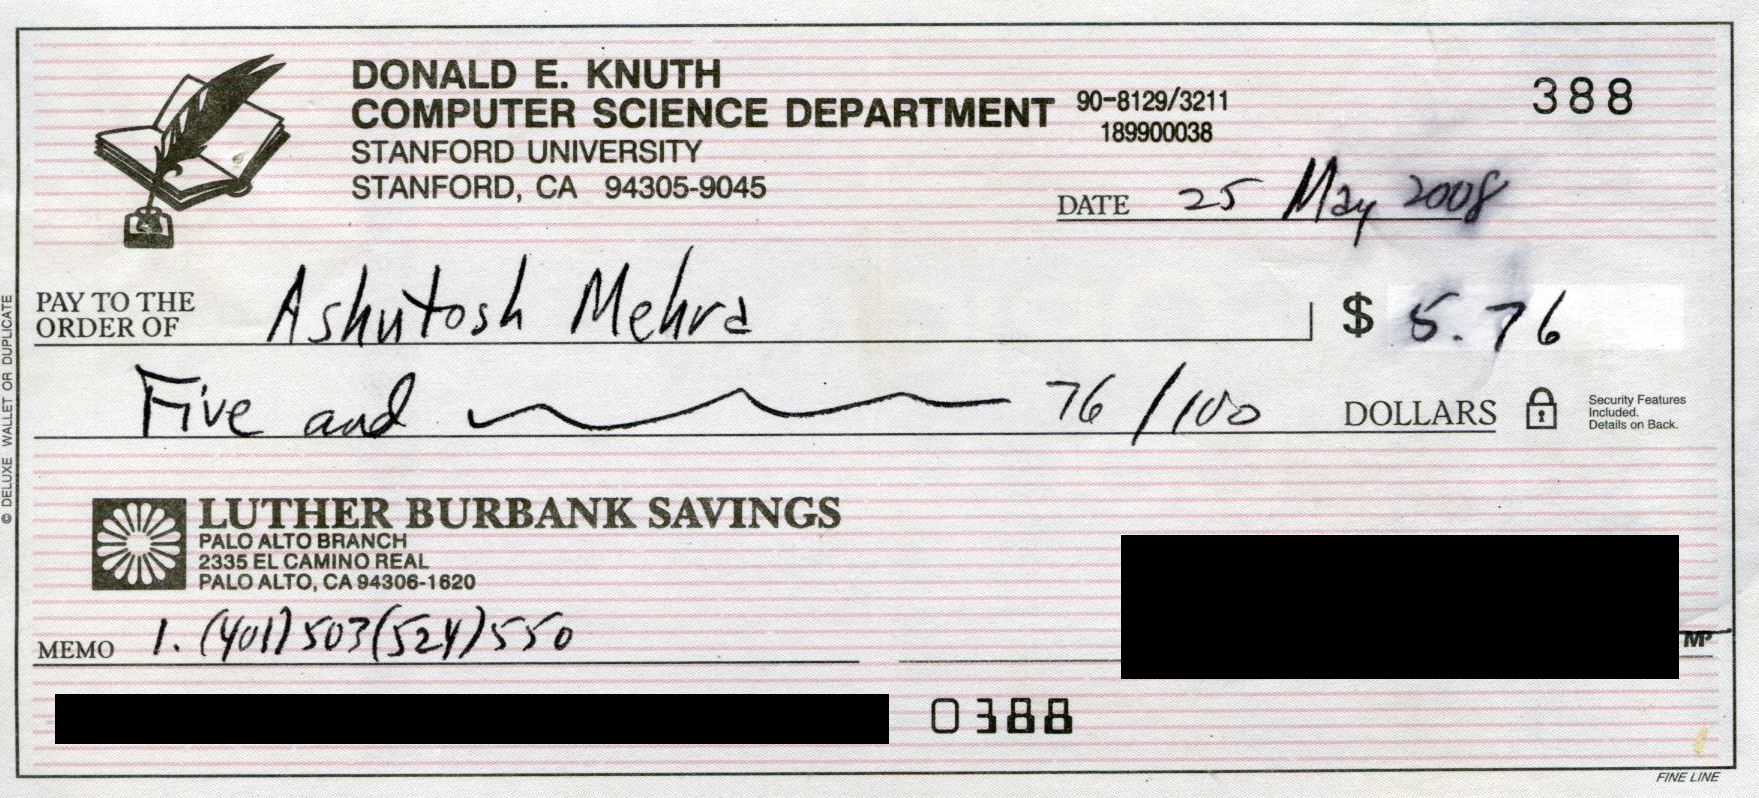 DONALD E. KNUTH
COMPUTER SCIENCE DEPARTMENT
STANFORD UNIVERSITY
STANFORD, CA 94305-9045
90-8129/3211
189900038
388
DATE 25 May 2008
PAY TO THE
ORDER OF Ashutosh Mehra $ 5.76
Five and 76/100 DOLLARS
Security Features
Included.
Details on Back.
© DELUXE WALLET OR DUPLICATE
LUTHER BURBANK SAVINGS
PALO ALTO BRANCH
2335 EL CAMINO REAL
PALO ALTO, CA 94306-1620
MEMO 1. (401)503(524)550
MP
0388
FINE LINE